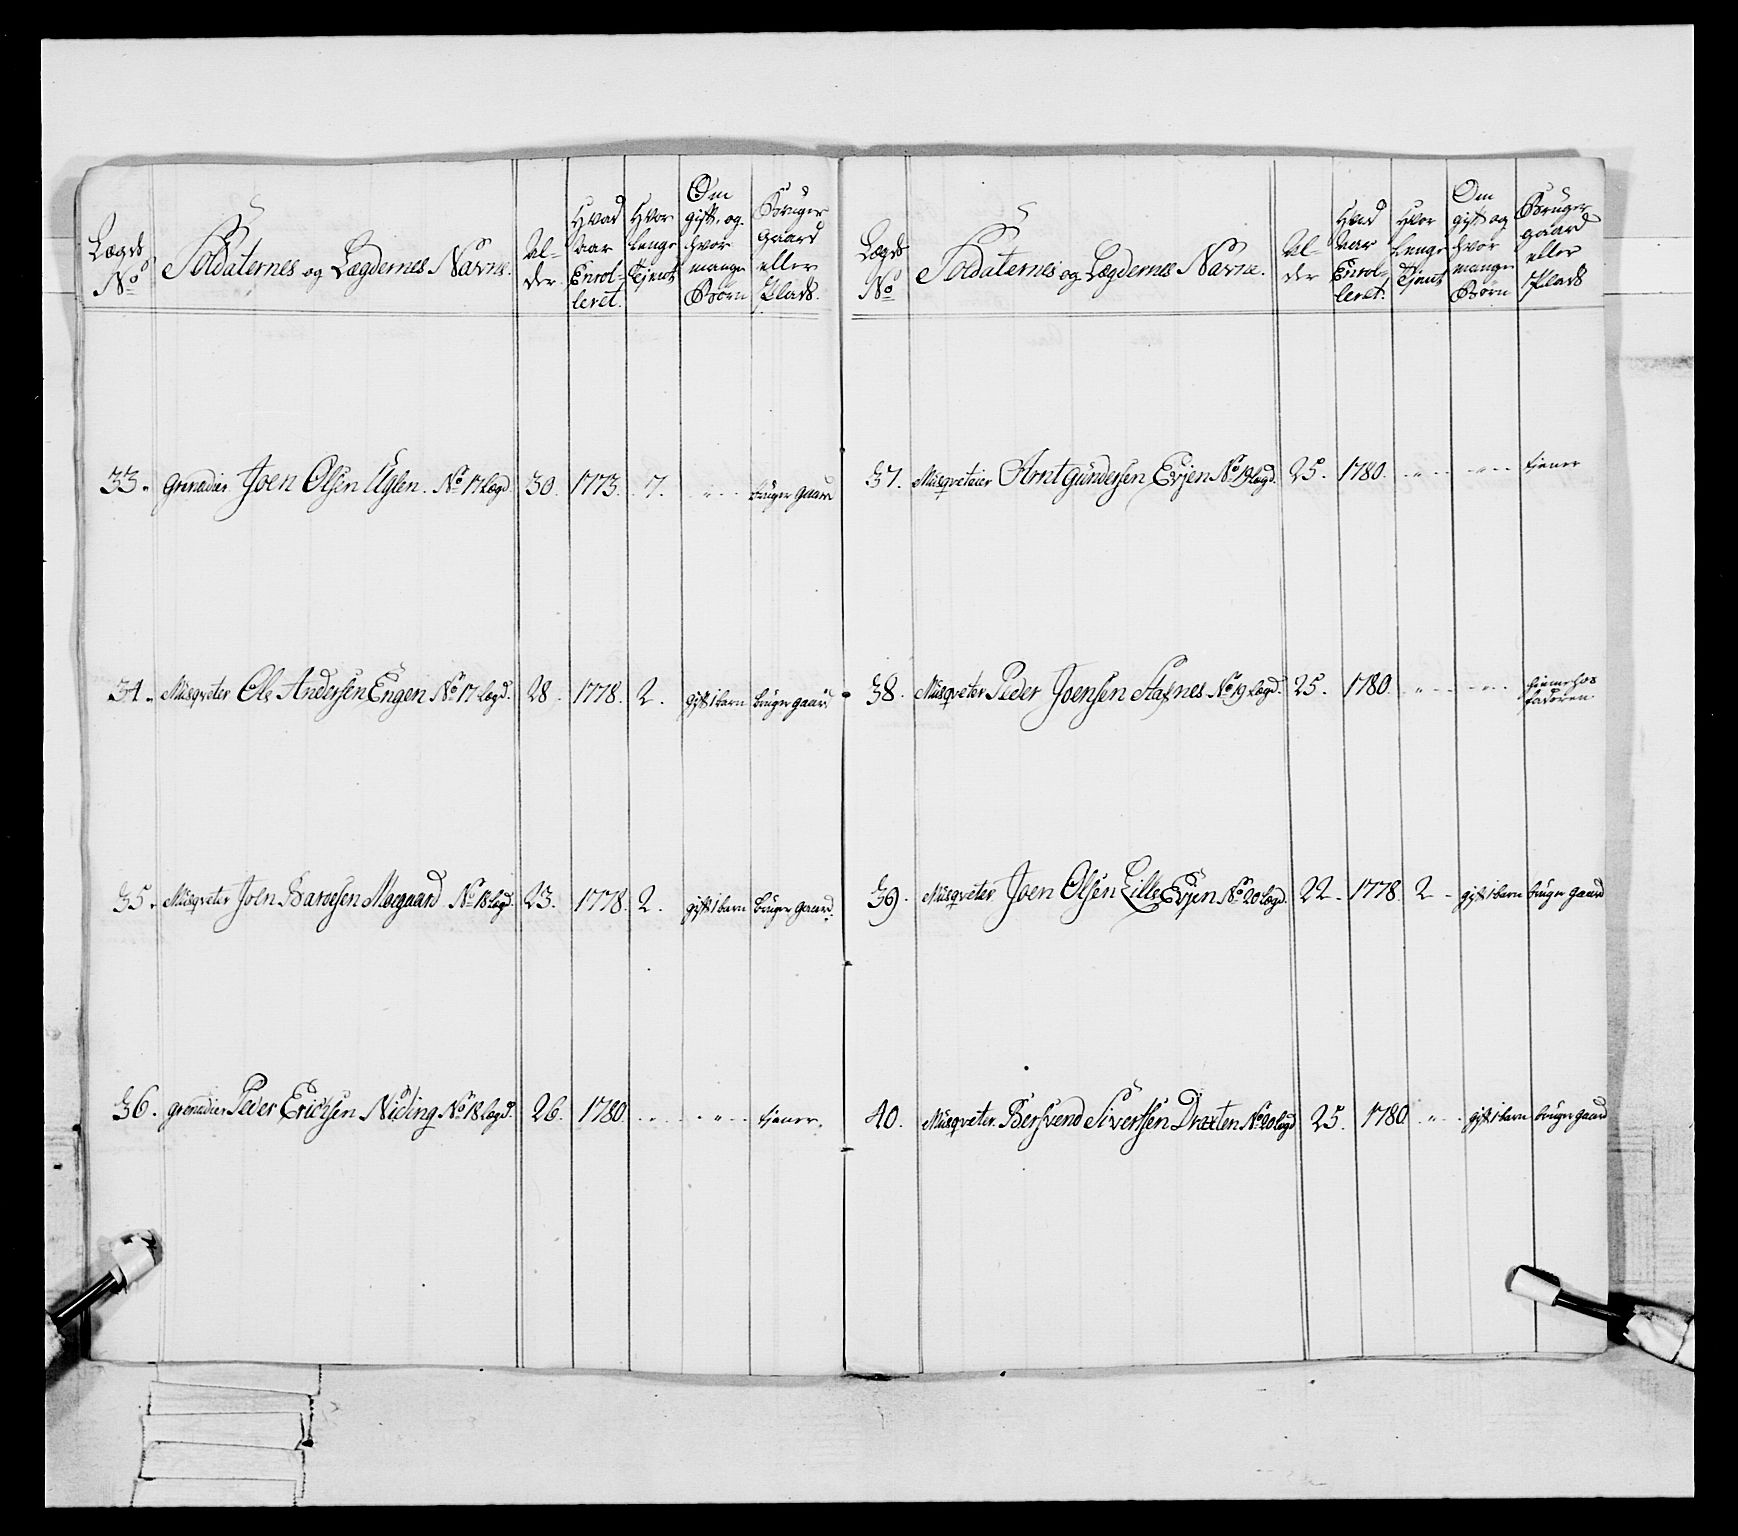 Lægds No
Soldaternes og Lægdernes Navne.
Al-
der.
Hvad
aar
Enrol-
leret.
Hvor
lenge
Tjent
Om
gift, og
hvor
mange
Børn
Bruger
gaard
eller
Plads.
33. Grenadier Joen Olsen Uglen. No 17 Lægd 30. 1773. 7. " bruger gaard
34. Musqveter Ole Andersen Engen No 17 Lægd. 28. 1778. 2. gift 1 barn bruger gaard
35. Musqveter Joen Baroesen Moegaard No 18 Lægd. 23. 1778. 2. gift 1 barn bruger gaard.
36. grenadier Peder Erichsen Niding No 18 lægd. 26. 1780. " " tjener.
Lægds
No
Soldaternes og Lægdernes Navne.
Al-
der
Hvad
aar
Enrol-
leret.
Hvor
lenge
Tjent
Om
gift og
hvor
mange
Børn
Bruger
gaard
eller
Plads
37. Musqveteer Arnt Gundersen Evjen No 19 lægd. 25. 1780. " " tjener
38. Musqveter Peder Joensen Stafnes No 19 Lægd. 25. 1780. " " tiener hos
faderen.
39. Musqveter Joen Olsen Lille Evjen No 20 Lægd. 22. 1778. 2 gift 1 barn bruger gaard
40. Musqveter Bersvend Sivertsen Draxten No 20 lægd 25. 1780 " gift 1 barn bruger gaard